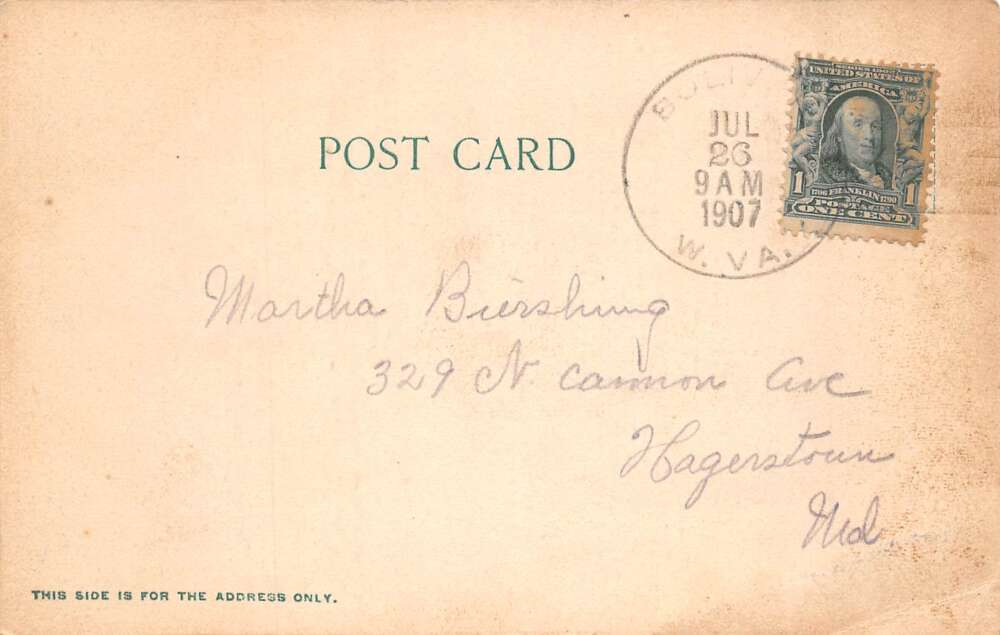 POST CARD
BOLIV
JUL
26
9 AM
1907
W. VA.
SERIES 1902
UNITED STATES OF
AMERICA
1 1706 FRANKLIN 1790 1
POSTAGE
ONE CENT
Martha Biershing
329 N. Cannon Ave
Hagerstown
Md.
THIS SIDE IS FOR THE ADDRESS ONLY.